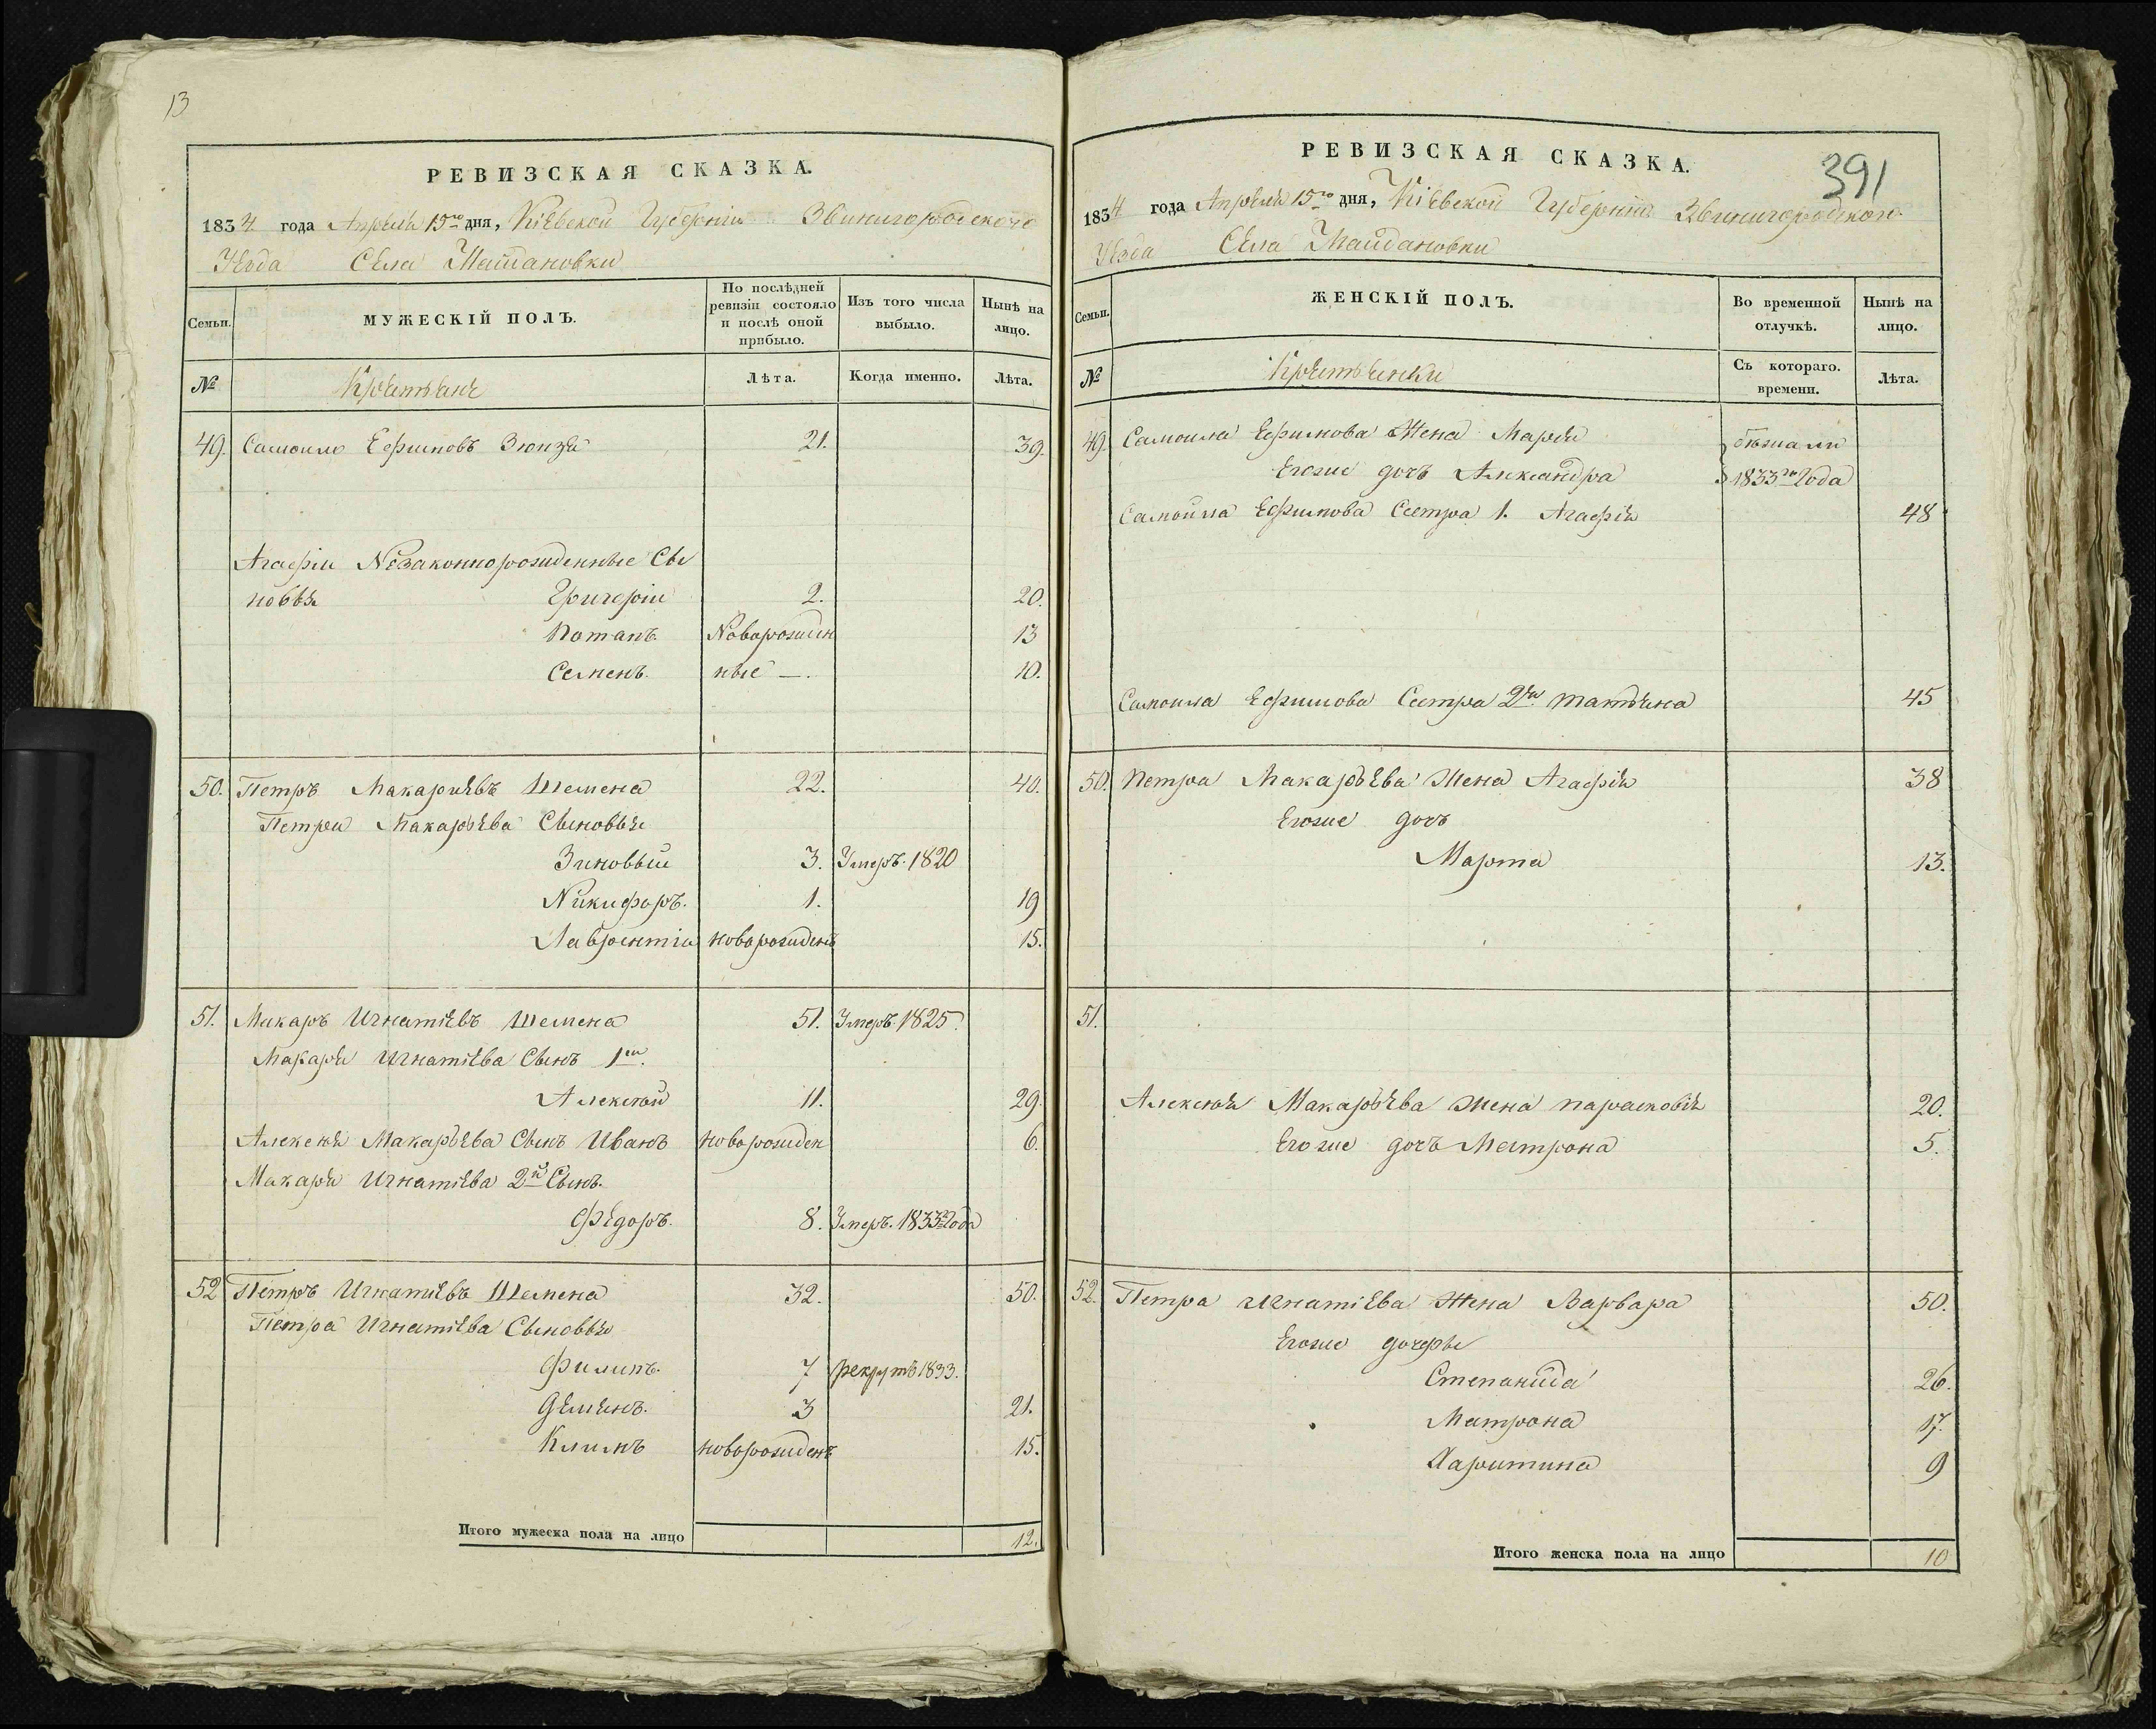 13
РЕВИЗСКАЯ СКАЗКА.
1834 года Апреля 15го дня, Кіевской Губерніи Звинигородского
Уезда Села Майдановки
Семьи.
МУЖЕСКІЙ ПОЛЪ.
По послѣдней ревизіи состояло и послѣ оной прибыло.
Изъ того числа выбыло.
Нынѣ на лицо.
№
Крестьяне
Лѣта.
Когда именно.
Лѣта.
49. Самоило Ефимовъ Зюзя 21. 39.
Агафіи Незаконнорожденные Сы
новья Григорій 2. 20.
Потапъ Новорожден 13
Семенъ. ные —. 10.
50. Петръ Макариевъ Шемена 22. 40.
Петра Макарьева Сыновья
Зиновый 3. Умеръ. 1820
Никифоръ. 1. 19
Лаврентій новорожденъ 15.
51. Макаръ Игнатіевъ Шемена 51. Умеръ. 1825.
Макара Игнатіева Сынъ 1й.
Алексѣй 11. 29.
Алексѣя Макарьева Сынъ Иванъ новорожден 6.
Макара Игнатіева 2й Сынъ.
Федоръ. 8. Умеръ. 1833го Года
52 Петръ Игнатіевъ Шемена 32. 50.
Петра Игнатіева Сыновья
Филипъ. 7 рекрутъ 1833.
Демьянъ. 3 21.
Климъ новорожденъ 15.
Итого мужеска пола на лицо 12.
РЕВИЗСКАЯ СКАЗКА.
391
1834 года Апреля 15го дня, Кіевской Губерніи Звинигородского
Уезда Села Майдановки
Семьи.
ЖЕНСКІЙ ПОЛЪ.
Во временной отлучкѣ.
Нынѣ на лицо.
№
Крестьянки
Съ котораго. времени.
Лѣта.
49. Самоила Ефимова Жена Марія бѣжали
Егоже дочъ Александра 1833го Года
Самойла Ефимова Сестра 1. Агафія 48
Самоила Ефимова Сестра 2я. татьяна 45
50. Петра Макарьева Жена Агафія 38
Егоже дочъ
Марта 13.
51.
Алексѣя Макарьева жена парасковія 20.
Егоже дочъ Матрона 5.
52. Петра Игнатіева Жена Варвара 50.
Егоже дочеры
Степанида 26.
Матрона 17.
Харитина 9
Итого женска пола на лицо 10